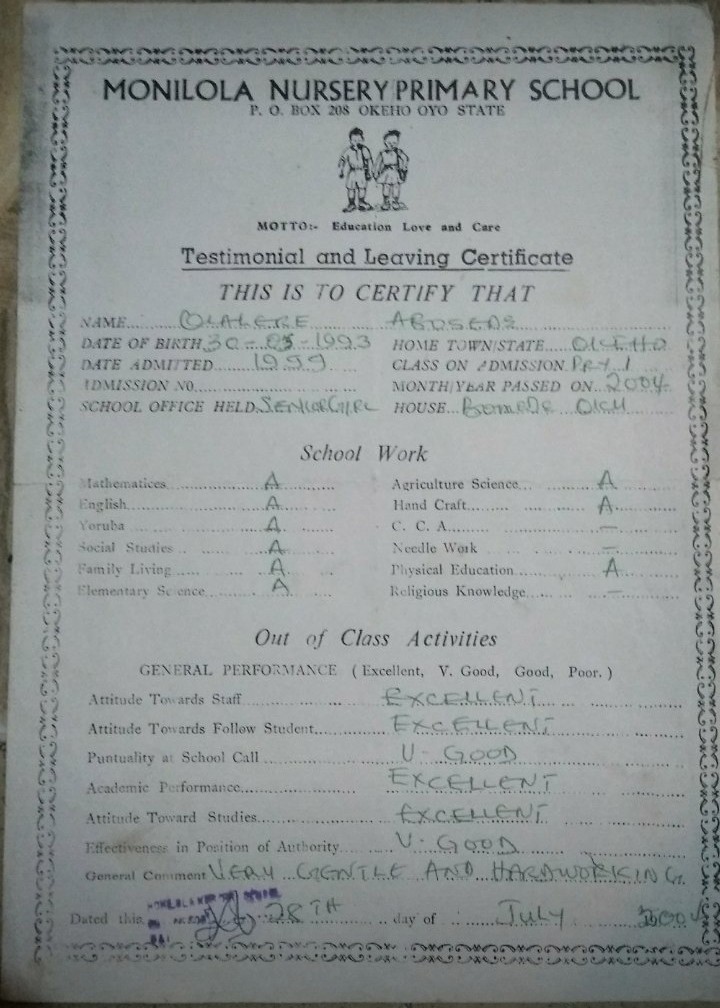 MONILOLA NURSERY PRIMARY SCHOOL
P. O. BOX 208 OKEHO OYO STATE
MOTTO:- Education Love and Care
Testimonial and Leaving Certificate
THIS IS TO CERTIFY THAT
NAME... OLALERE
DATE OF BIRTH 30-05-1993 HOME TOWN/STATE... OKEHO
DATE ADMITTED... 1999 CLASS ON ADMISSION PRY 1
ADMISSION NO... MONTH/YEAR PASSED ON... 2004
SCHOOL OFFICE HELD SENIOR GIRL HOUSE...
School Work
Mathematices... A Agriculture Science... A
English... A Hand Craft... A
Yoruba... A C. C. A... —
Social Studies... A Needle Work... —
Family Living... A Physical Education... A
Elementary Science... A Religious Knowledge... —
Out of Class Activities
GENERAL PERFORMANCE (Excellent, V. Good, Good, Poor.)
Attitude Towards Staff... EXCELLENT
Attitude Towards Follow Student... EXCELLENT
Puntuality at School Call... V. GOOD
Academic Performance... EXCELLENT
Attitude Toward Studies... EXCELLENT
Effectiveness in Position of Authority... V. GOOD
General Comment VERY GENTLE AND HARDWORKING.
Dated this... 28TH ...day of... JULY